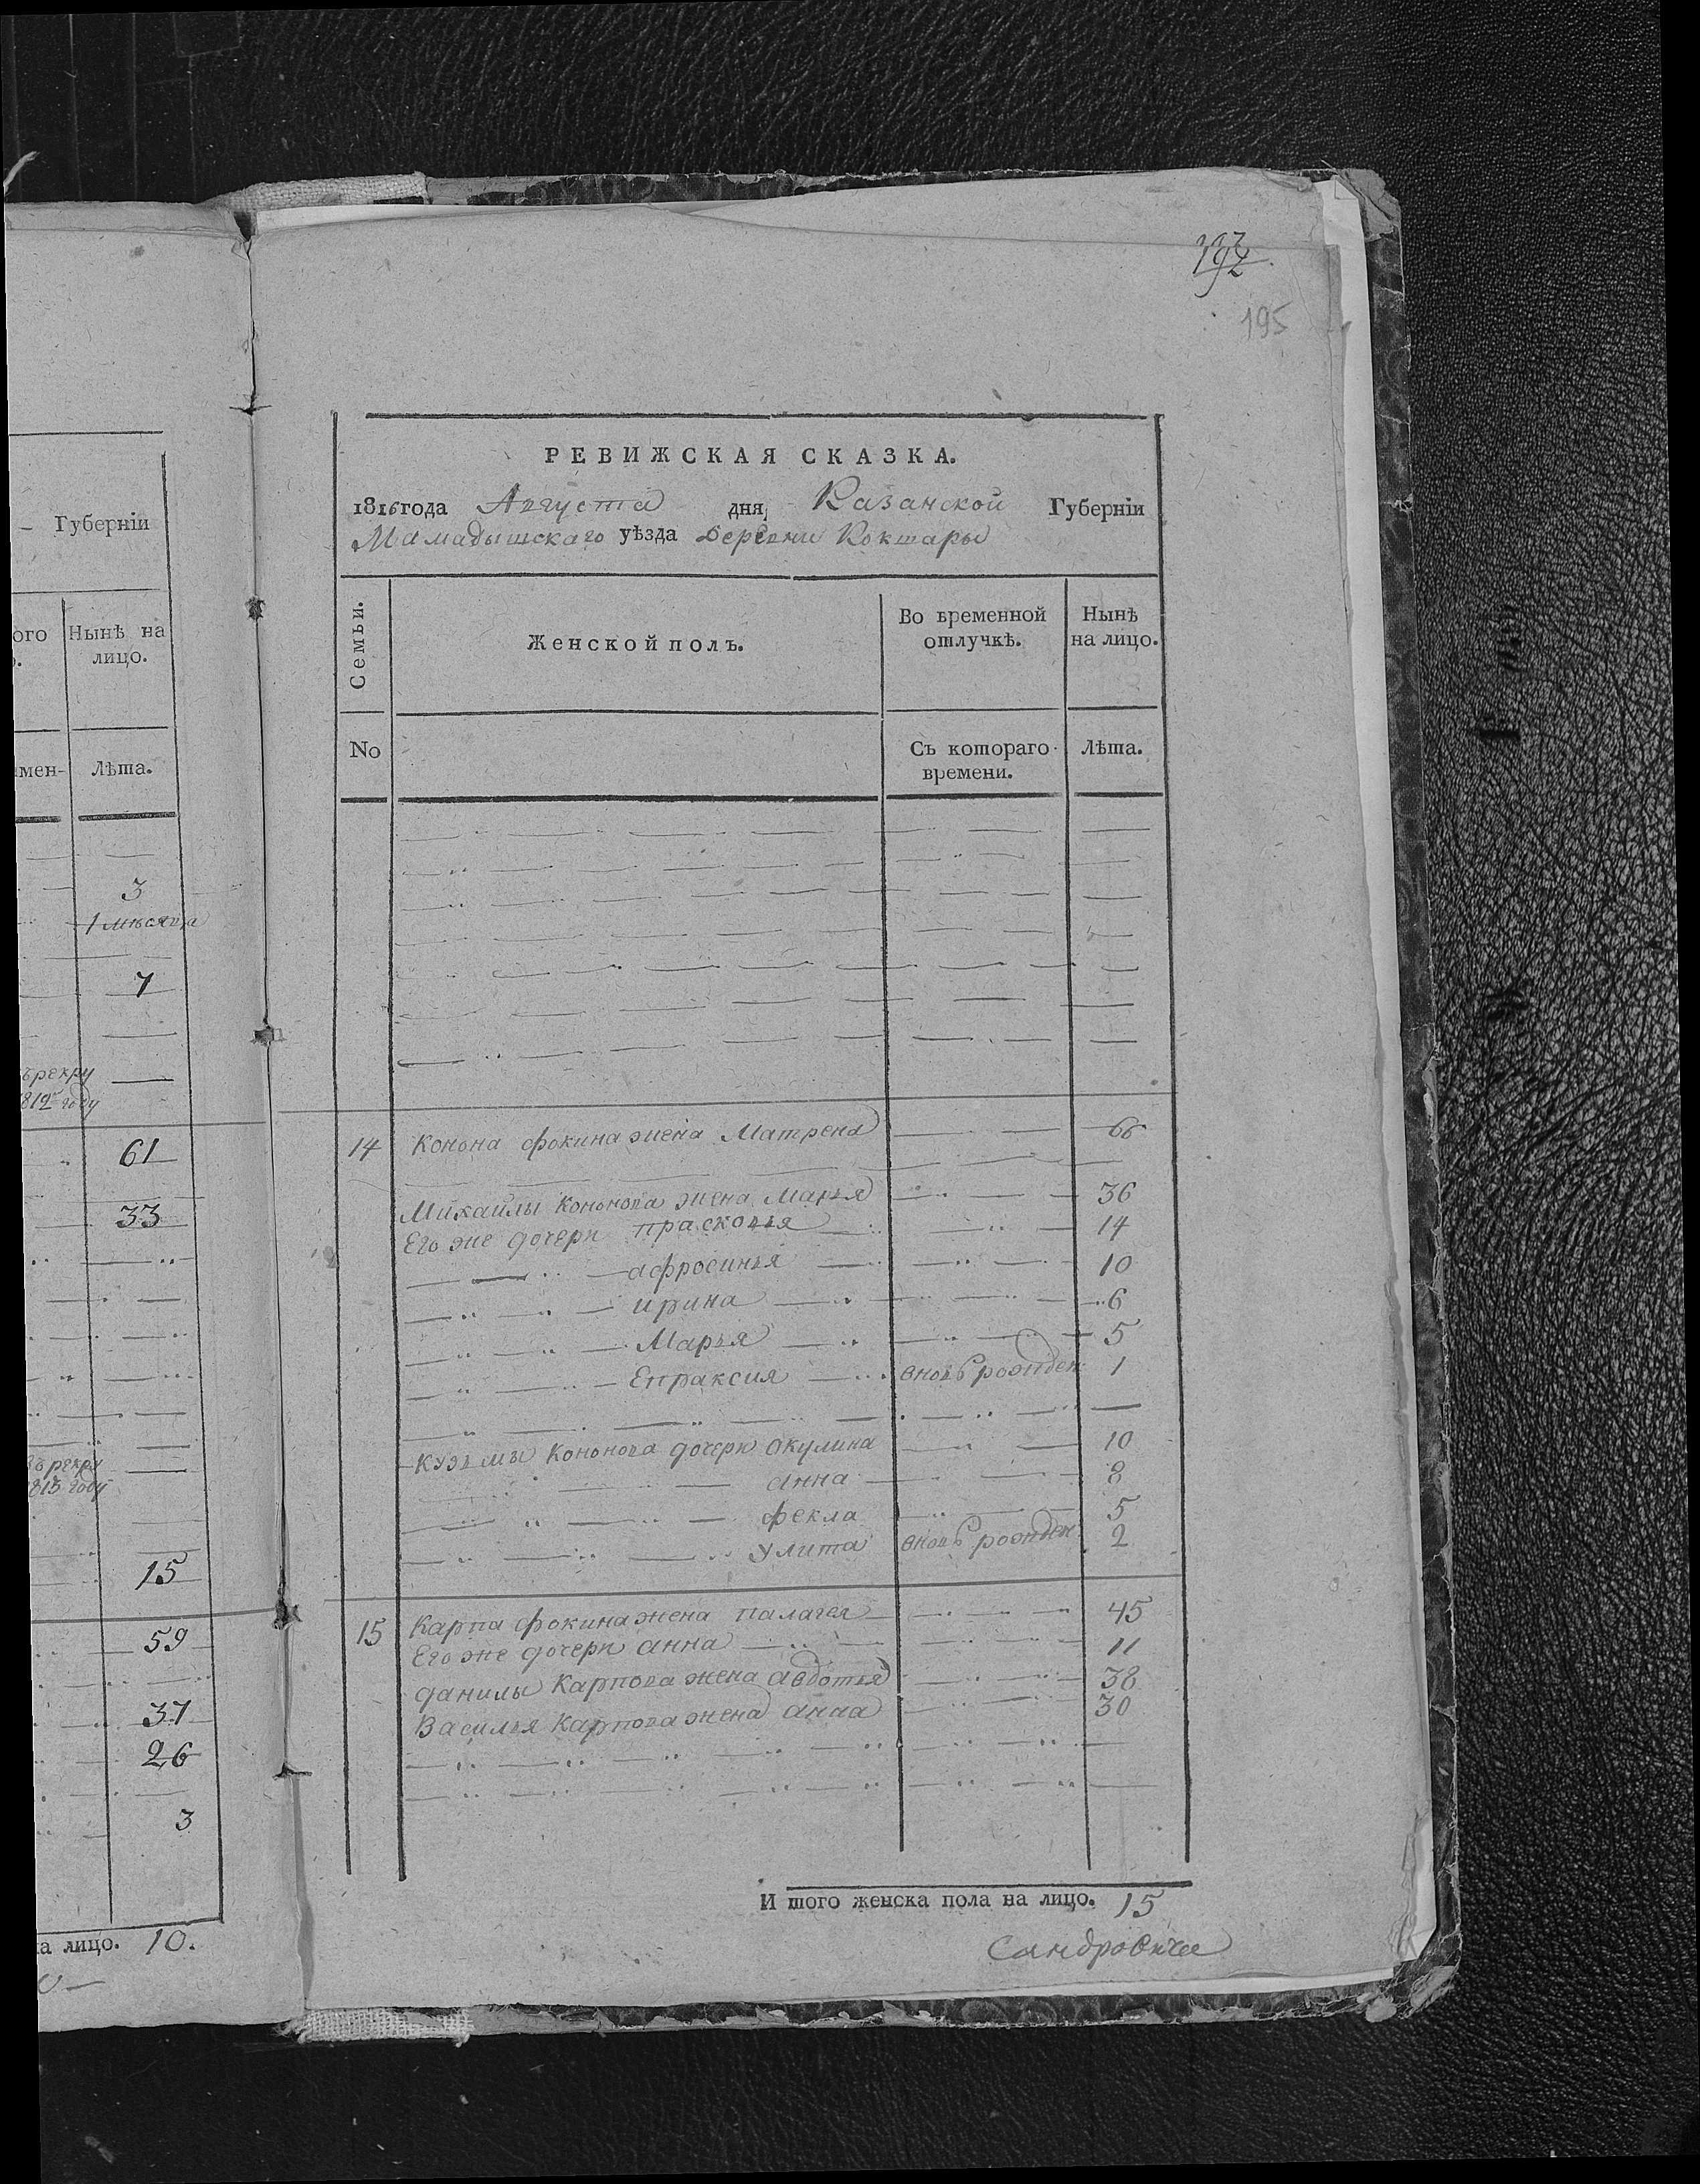 195
РЕВИЖСКАЯ СКАЗКА.
1816 года Августа дня, Казанской Губернїи
Мамадышскаго уѣзда деревни Кокшары
Семьи.
Женской полъ.
Во временной отлучкѣ.
Нынѣ на лицо.
No
Съ котораго времени.
Лѣта.
14 Конона фокина жена Матрена 66
Михайлы Кононова жена Марья 36
Его же дочери прасковья 14
афросинья 10
ирина 6
Марья 5
Епраксия вновь рожден 1
Кузьмы Кононова дочери Окулина 10
анна 8
фекла 5
Улита вновь рожден 2
15 Карпа фокина жена палагея 45
Его же дочери анна 11
данилы Карпова жена авдотья 38
Василья Карпова жена анна 30
И того женска пола на лицо. 15
Сандровиче
Губернїи
ого
Нынѣ на лицо.
мен-
Лѣта.
3
1 месяца
7
ърекру
812 году
61
33
въ рекру
813 году
15
59
37
26
3
а лицо. 10.